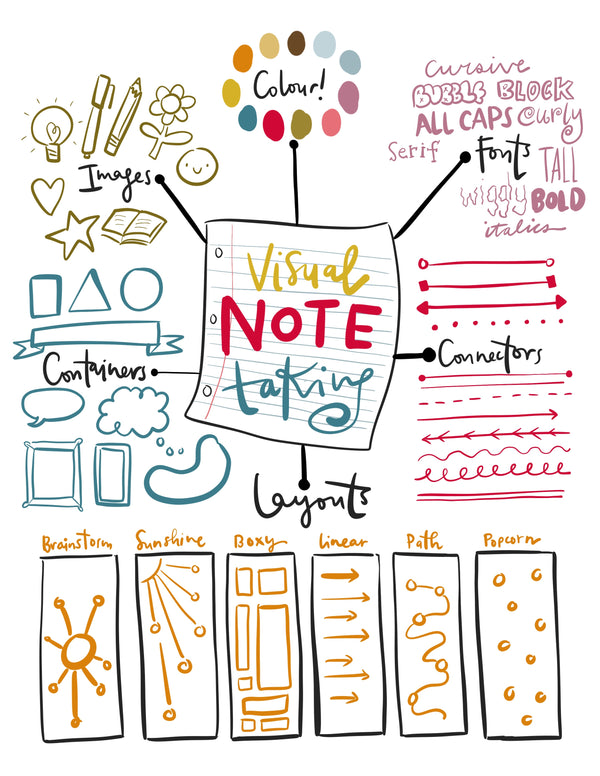 Colour!
Cursive
BUBBLE BLOCK
ALL CAPS Curly
Serif
Fonts
TALL
wiggly BOLD
italics
Images
Visual
NOTE
taking
Containers
Connectors
Layouts
Brainstorm Sunshine Boxy Linear Path Popcorn